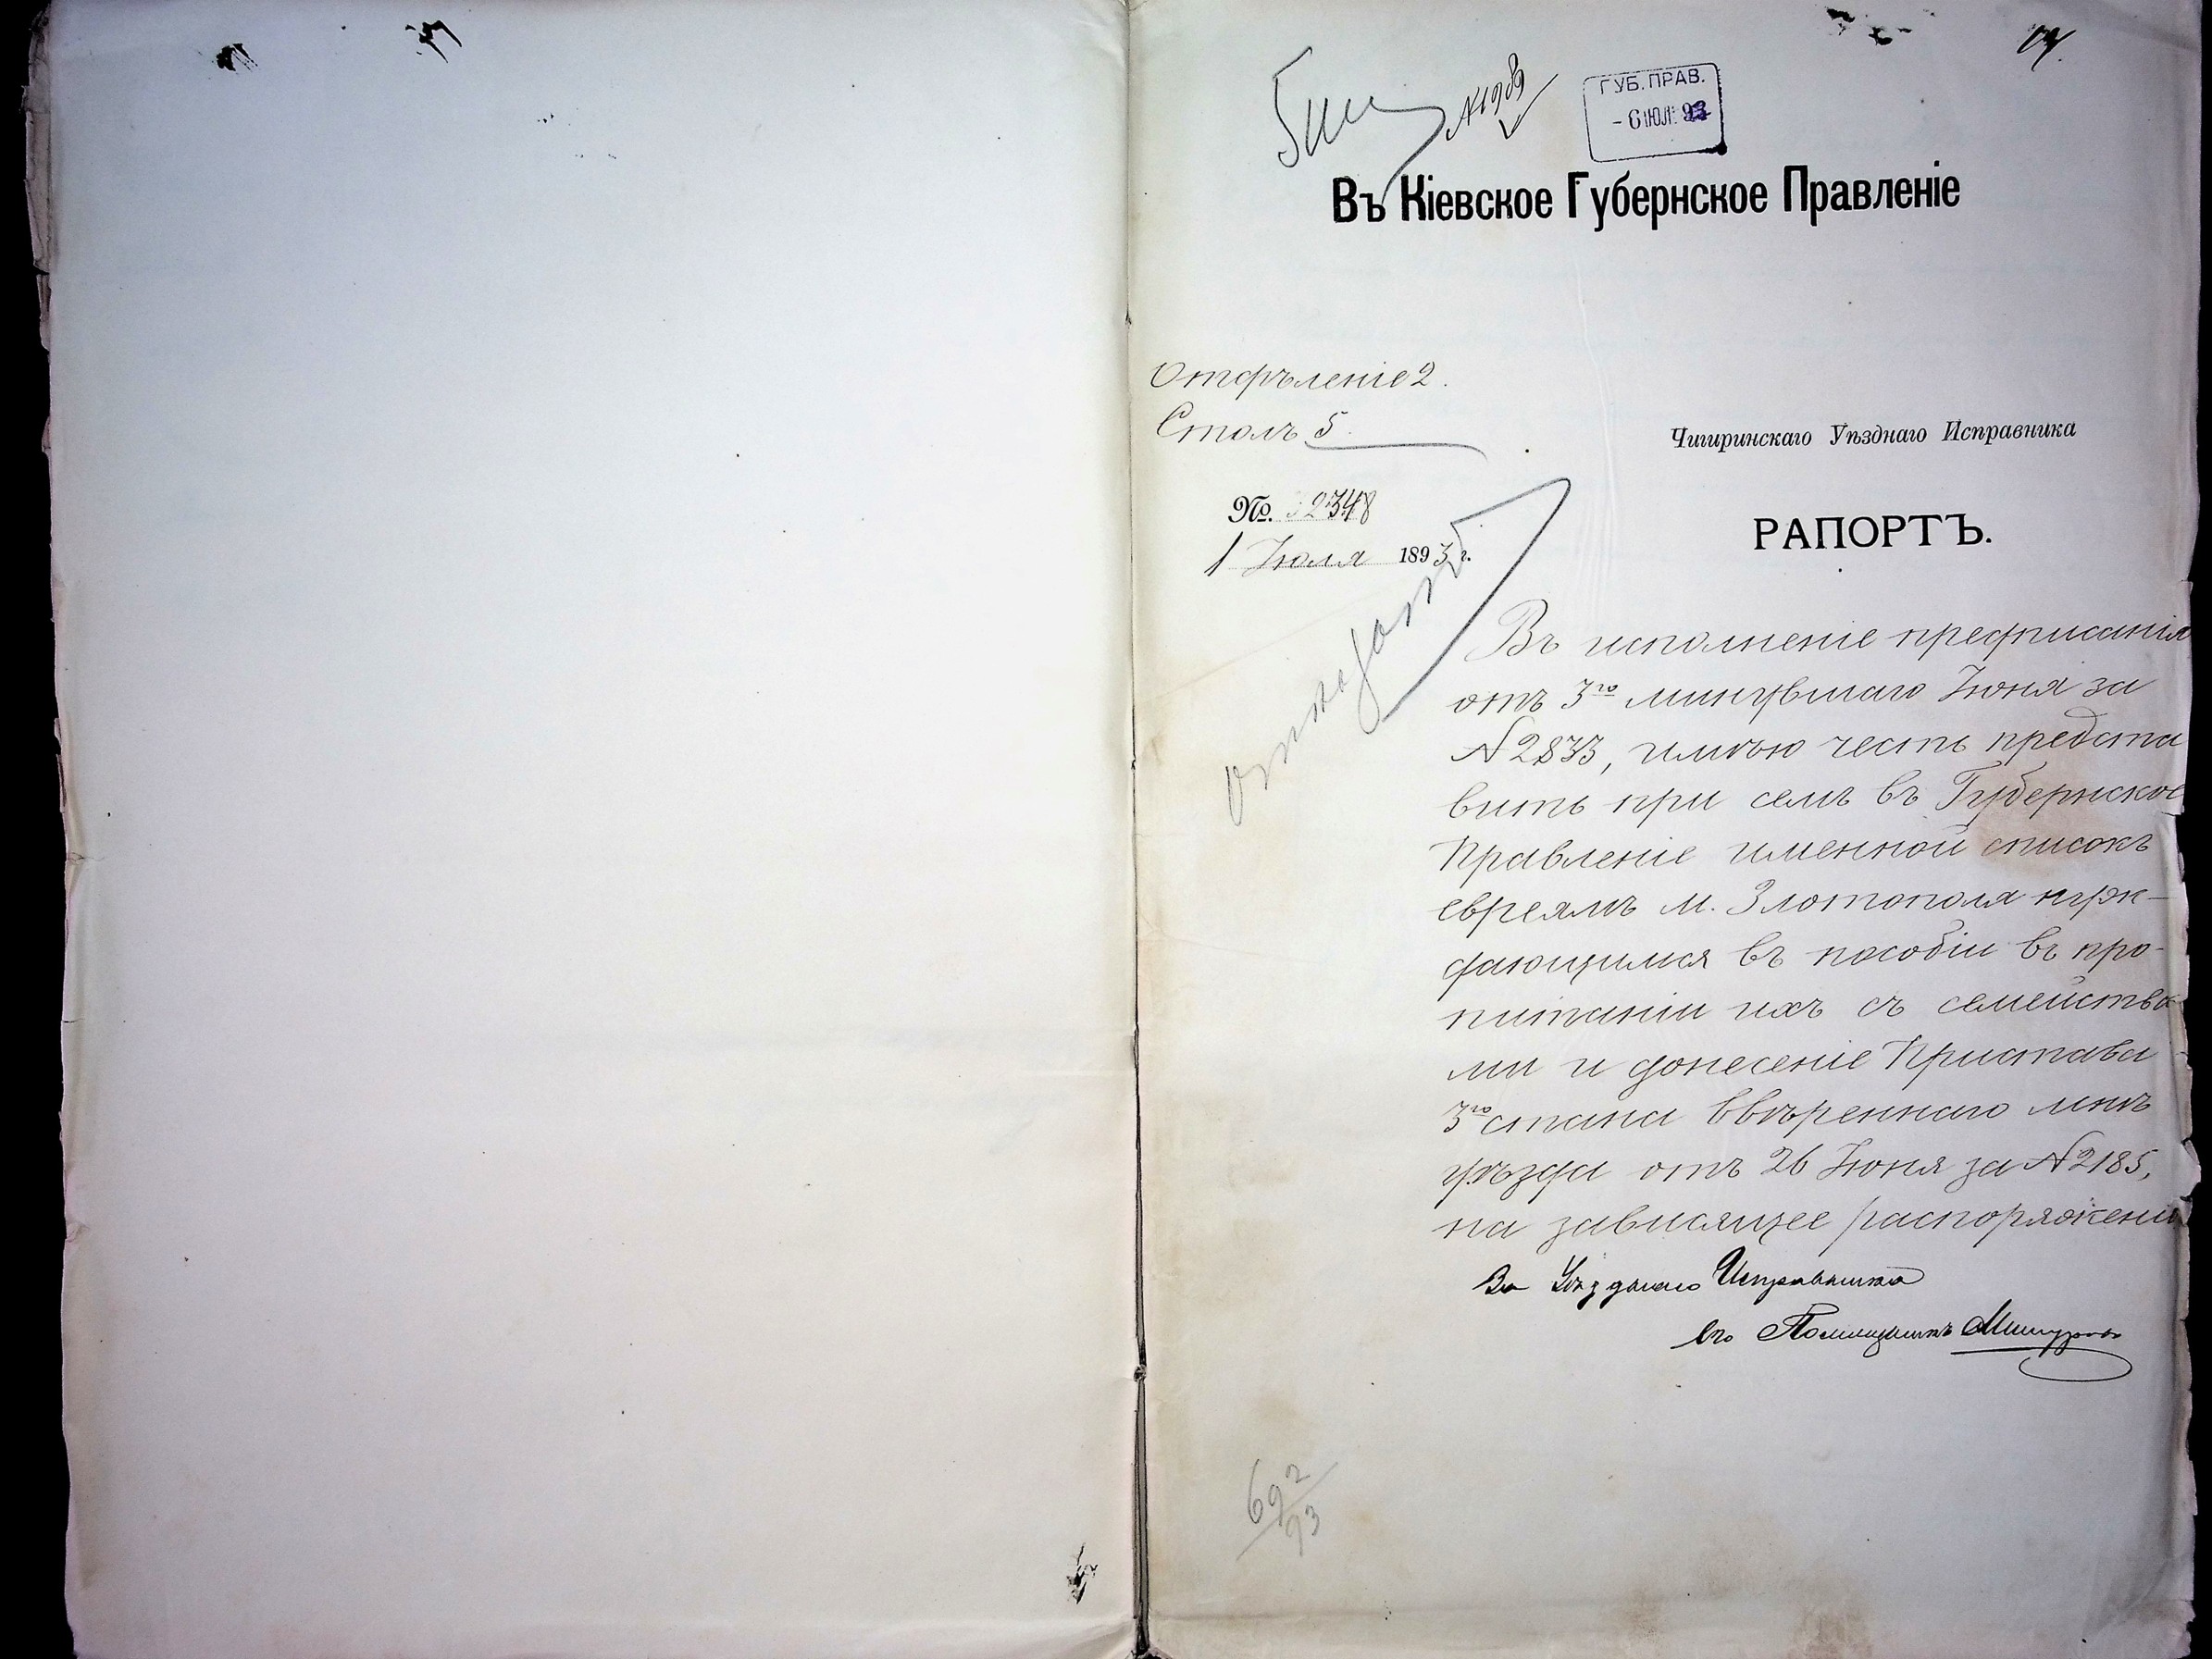 № 1989
ГУБ. ПРАВ.
- 6 ІЮЛ. 93
Въ Кіевское Губернское Правленіе
Отдѣленіе 2.
Столъ 5.
Чигиринскаго Уѣзднаго Исправника
№. 2348
1 Іюля 1893 г.
РАПОРТЪ.
Въ исполненіе предписанія
отъ 3го минувшаго Іюня за
№ 2833, имѣю честь предста
вить при семъ въ Губернское
Правленіе именной списокъ
евреямъ м. Златополя нуж-
дающимся въ пособіи въ про-
питаніи ихъ съ семейства
ми и донесеніе Пристава
3го стана ввѣреннаго мнѣ
уѣзда отъ 26 Іюня за № 2185,
на зависящее распоряженіе
За Уѣзднаго Исправника
его Помощникъ
692
93